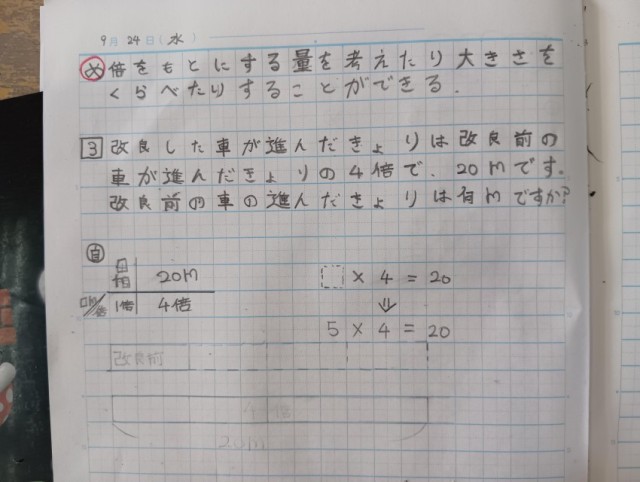 9月 24日(水)
め 倍をもとにする量を考えたり大きさを
くらべたりすることができる.
3 改良した車が進んだきょりは改良前の
車が進んだきょりの4倍で、20mです。
改良前の車の進んだきょりは何mですか?
自
20m
□ × 4 = 20
1倍 4倍
⇓
5 × 4 = 20
改良前
20m